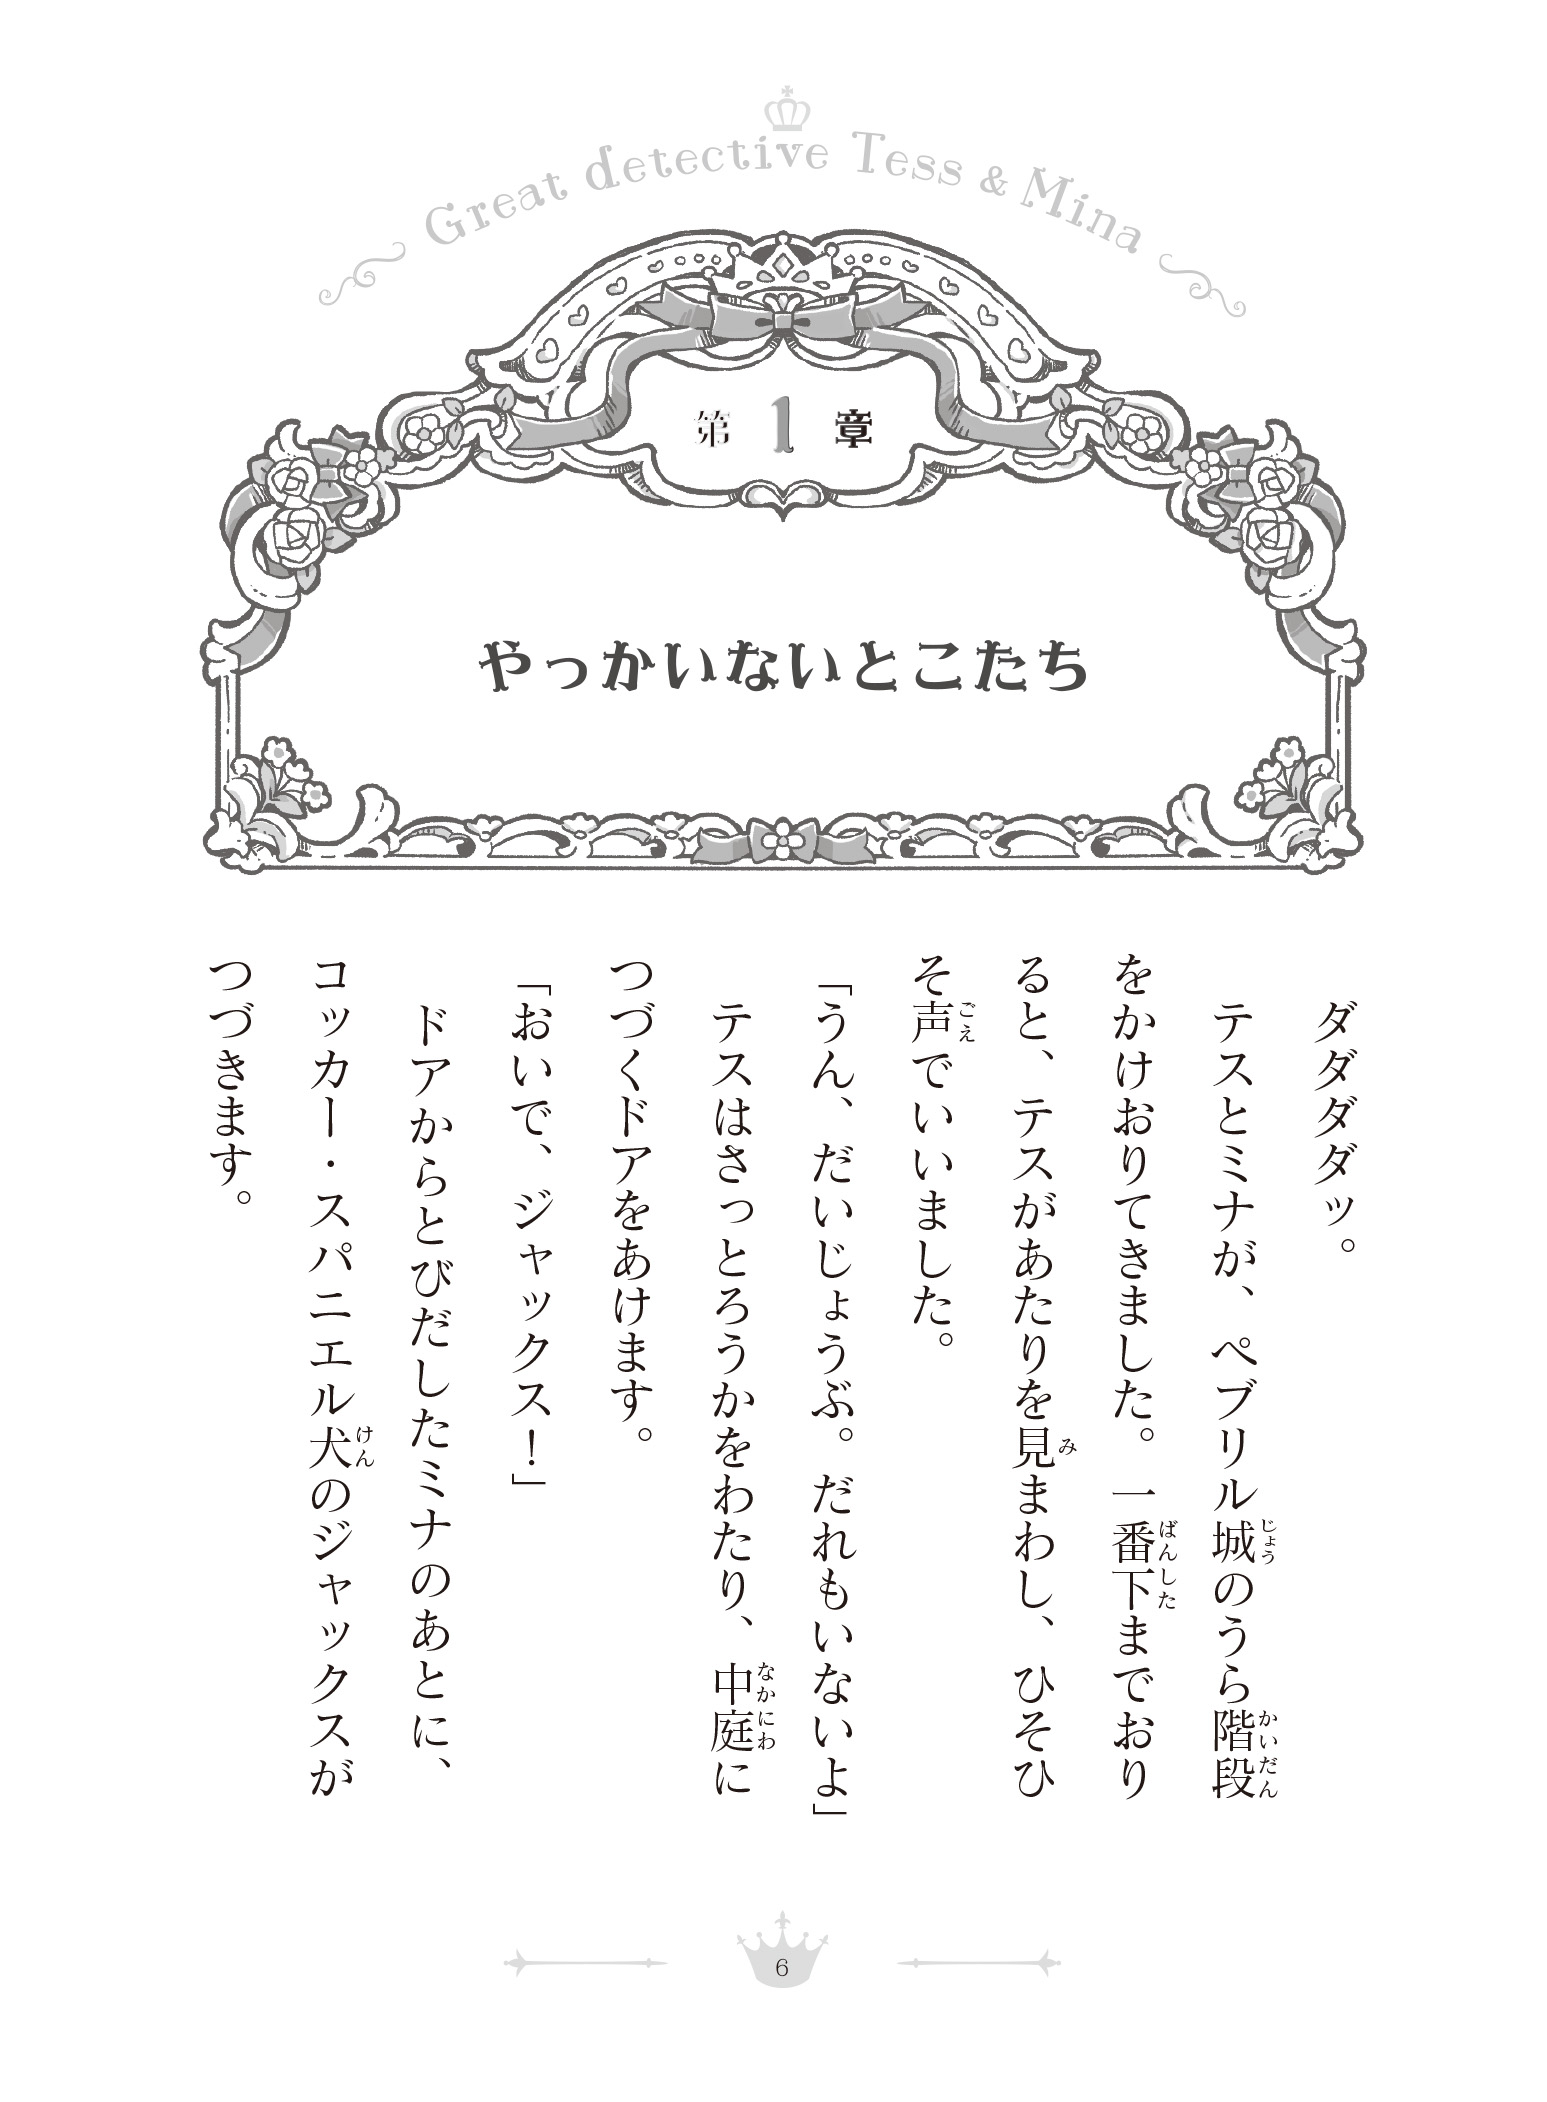 Great detective Tess & Mina
第1章
やっかいないとこたち
ダダダダッ。
テスとミナが、ペブリル城のうら階段
じょう
かいだん
をかけおりてきました。一番下までおり
ばんした
ると、テスがあたりを見まわし、ひそひ
み
そ声でいいました。
ごえ
「うん、だいじょうぶ。だれもいないよ」
テスはさっとろうかをわたり、中庭に
なかにわ
つづくドアをあけます。
「おいで、ジャックス！」
ドアからとびだしたミナのあとに、
コッカー・スパニエル犬のジャックスが
けん
つづきます。
6